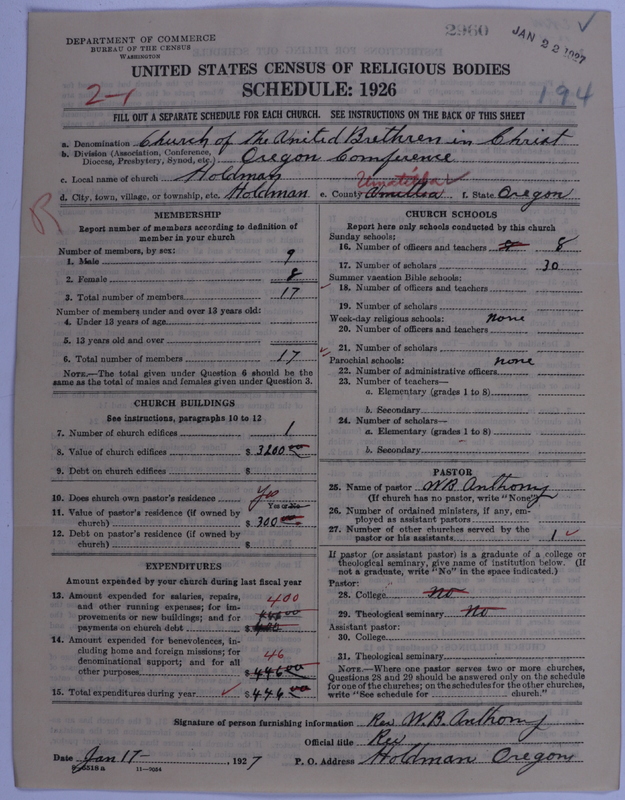 2960
JAN 22 1927
DEPARTMENT OF COMMERCE
BUREAU OF THE CENSUS
WASHINGTON
UNITED STATES CENSUS OF RELIGIOUS BODIES
SCHEDULE: 1926
2-1
194
FILL OUT A SEPARATE SCHEDULE FOR EACH CHURCH. SEE INSTRUCTIONS ON THE BACK OF THIS SHEET
a. Denomination Church of the United Brethren in Christ
b. Division (Association, Conference, Diocese, Presbytery, Synod, etc.) Oregon Comference
c. Local name of church Holdman
d. City, town, village, or township, etc. Holdman e. County Umatilla f. State Oregon
R
MEMBERSHIP
Report number of members according to definition of
member in your church
Number of members, by sex:
1. Male 9
2. Female 8
3. Total number of members 17
Number of members under and over 13 years old:
4. Under 13 years of age
5. 13 years old and over
6. Total number of members 17
NOTE.—The total given under Question 6 should be the
same as the total of males and females given under Question 3.
CHURCH BUILDINGS
See instructions, paragraphs 10 to 12
7. Number of church edifices 1
8. Value of church edifices $ 3200 00
9. Debt on church edifices $
10. Does church own pastor's residence Yes
Yes or No
11. Value of pastor's residence (if owned by
church) $ 300
12. Debt on pastor's residence (if owned by
church) $
EXPENDITURES
Amount expended by your church during last fiscal year
13. Amount expended for salaries, repairs,
and other running expenses; for im-
provements or new buildings; and for
payments on church debt $ 400
14. Amount expended for benevolences, in-
cluding home and foreign missions; for
denominational support; and for all
other purposes $ 46 446 00
15. Total expenditures during year $ 446 00
CHURCH SCHOOLS
Report here only schools conducted by this church
Sunday schools:
16. Number of officers and teachers 8 8
17. Number of scholars 30
Summer vacation Bible schools:
18. Number of officers and teachers
19. Number of scholars
Week-day religious schools: none
20. Number of officers and teachers
21. Number of scholars
Parochial schools: none
22. Number of administrative officers
23. Number of teachers—
a. Elementary (grades 1 to 8)
b. Secondary
24. Number of scholars—
a. Elementary (grades 1 to 8)
b. Secondary
PASTOR
25. Name of pastor W B Anthony
(If church has no pastor, write "None")
26. Number of ordained ministers, if any, em-
ployed as assistant pastors
27. Number of other churches served by the
pastor or his assistants 1
If pastor (or assistant pastor) is a graduate of a college or
theological seminary, give name of institution below. (If
not a graduate, write "No" in the space indicated.)
Pastor:
28. College No
29. Theological seminary No
Assistant pastor:
30. College
31. Theological seminary
NOTE.—Where one pastor serves two or more churches,
Questions 28 and 29 should be answered only on the schedule
for one of the churches; on the schedules for the other churches,
write "See schedule for church."
Signature of person furnishing information Rev W.B. Anthony
Official title Rev
Date Jan 17, 1927 P. O. Address Holdman Oregon
11—3054